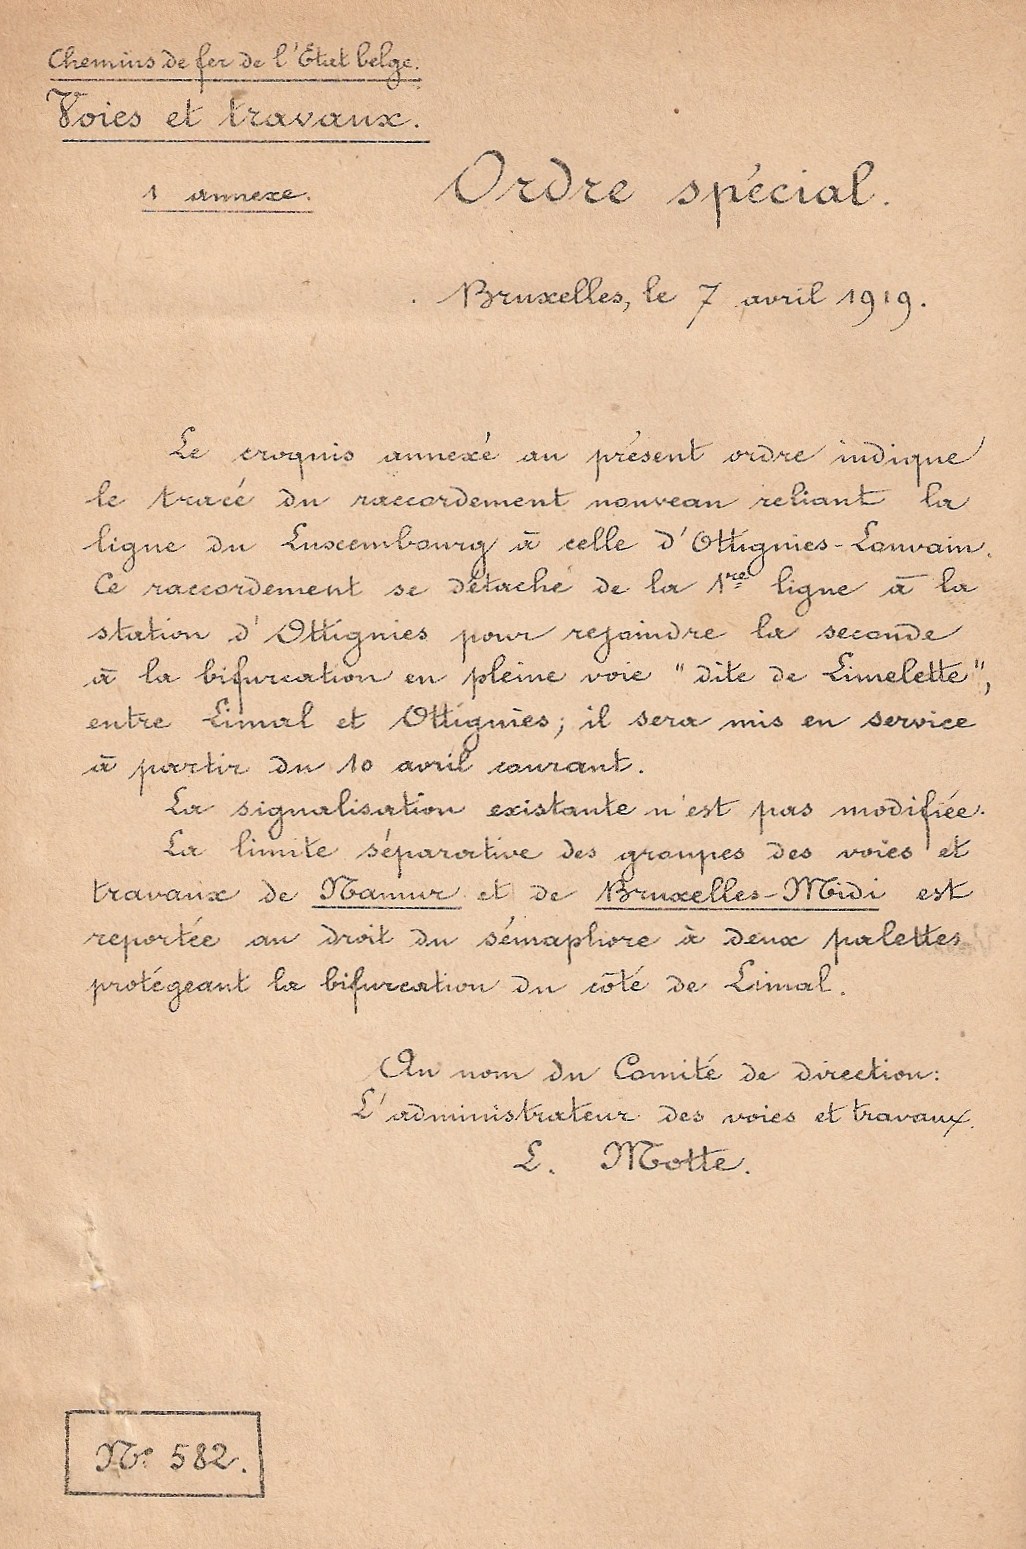 Chemins de fer de l'Etat belge.
Voies et travaux.
1 annexe.
Ordre spécial.
Bruxelles, le 7 avril 1919.
Le croquis annexé au présent ordre indique
le tracé du raccordement nouveau reliant la
ligne du Luxembourg à celle d'Ottignies-Louvain.
Ce raccordement se détache de la 1re ligne à la
station d'Ottignies pour rejoindre la seconde
à la bifurcation en pleine voie "dite de Limelette",
entre Limal et Ottignies; il sera mis en service
à partir du 10 avril courant.
La signalisation existante n'est pas modifiée.
La limite séparative des groupes des voies et
travaux de Namur et de Bruxelles-Midi est
reportée au droit du sémaphore à deux palettes
protégeant la bifurcation du côté de Limal.
Au nom du Comité de direction:
L'administrateur des voies et travaux.
L. Motte.
N° 582.